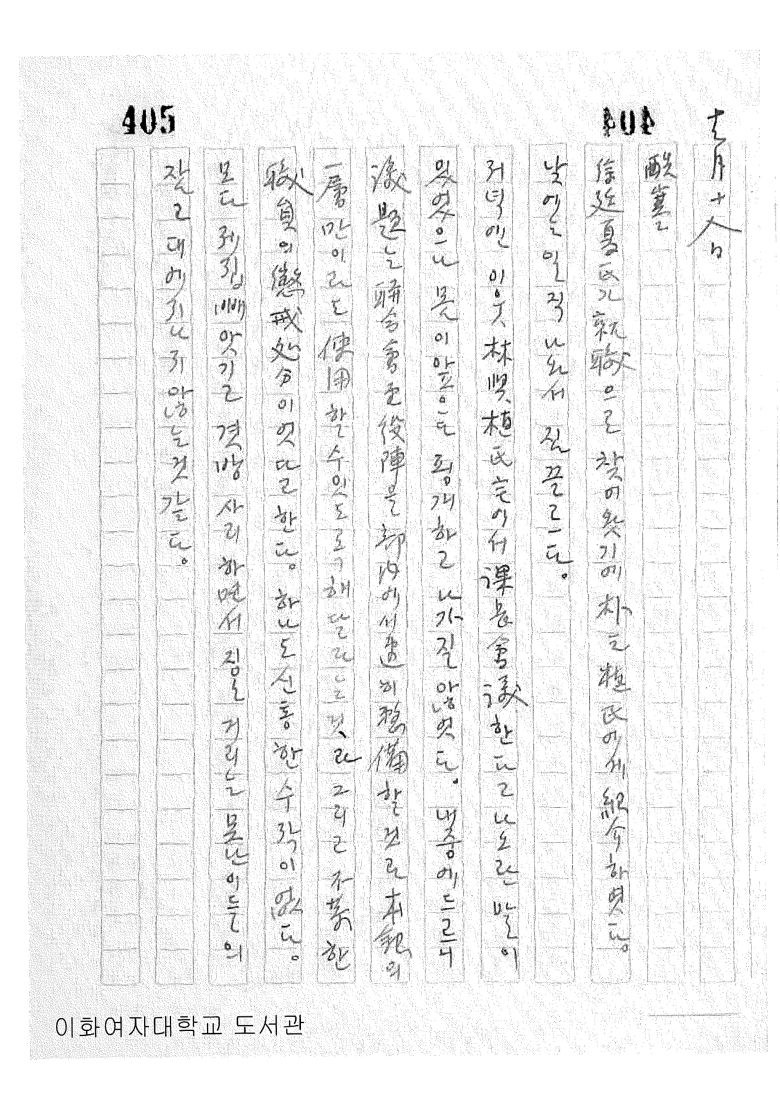 405
404
十一月十八日
酷寒
徐廷夏氏가 就職으로 찾어왓기에 朴元植氏에게 紹介하엿다。
낮에는 일직 나와서 집끌르다。
저녁엔 이웃 林興植氏宅에서 課長會議한다고 나오란 말이
잇엇으나 몸이 않으다 핑개하고 나가질 않엇다。 내중에 드르니
議題는 聯合會 重役陣을 部內에서 速히 整備할 것과 本館의
一層만이라도 使用할 수 잇도록 해달라는 것과 그리고 不美한
職員의 懲戒処分이엇다고 한다。 하나도 신통한 수작이 없다。
모다 제집 빼앗기고 겻방사리하면서 짓거리는 못난이들의
잘고대에 지나지 않는 것 같다。
이화여자대학교 도서관